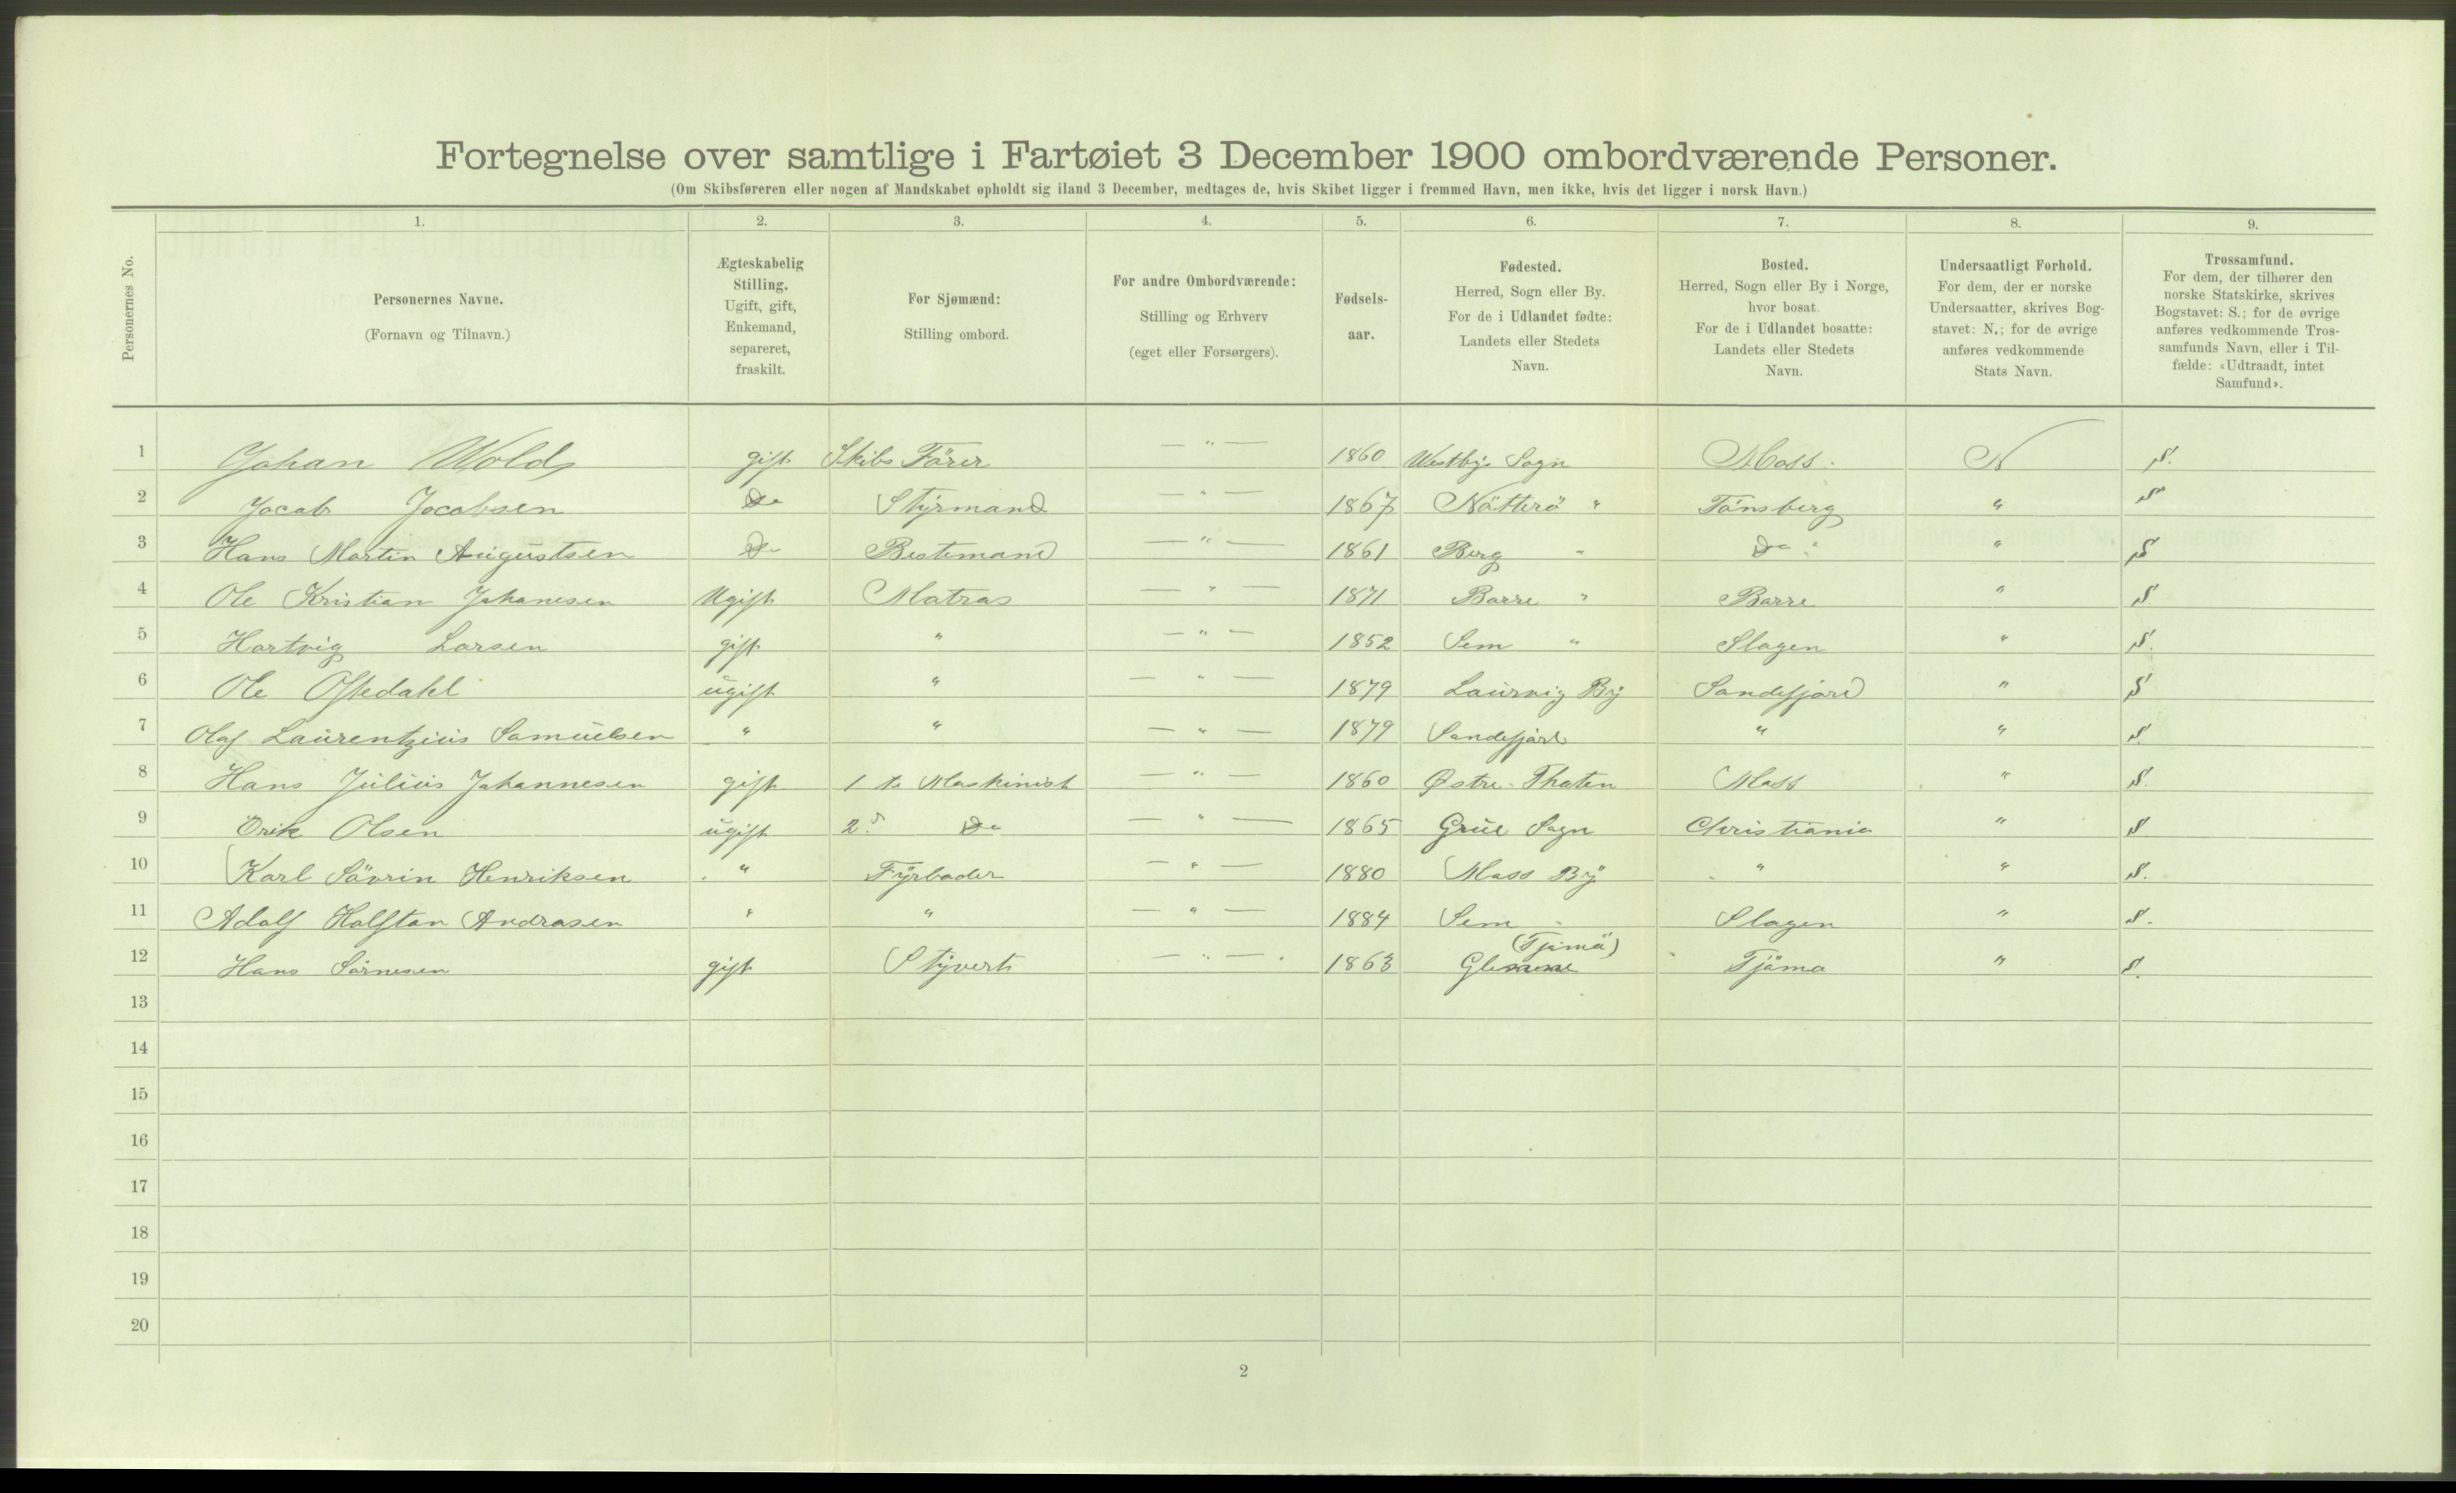 Fortegnelse over samtlige i Fartøiet 3 December 1900 ombordværende Personer.
(Om Skibsføreren eller nogen af Mandskabet opholdt sig iland 3 December, medtages de, hvis Skibet ligger i fremmed Havn, men ikke, hvis det ligger i norsk Havn.)
Personernes No.
1.
Personernes Navne.
(Fornavn og Tilnavn.)
2.
Ægteskabelig
Stilling.
Ugift, gift,
Enkemand,
separeret,
fraskilt.
3.
For Sjømænd:
Stilling ombord.
4.
For andre Ombordværende:
Stilling og Erhverv
(eget eller Forsørgers).
5.
Fødsels-
aar.
6.
Fødested.
Herred, Sogn eller By.
For de i Udlandet fødte:
Landets eller Stedets
Navn.
7.
Bosted.
Herred, Sogn eller By i Norge,
hvor bosat.
For de i Udlandet bosatte:
Landets eller Stedets
Navn.
8.
Undersaatligt Forhold.
For dem, der er norske
Undersaatter, skrives Bog-
stavet: N.; for de øvrige
anføres vedkommende
Stats Navn.
9.
Trossamfund.
For dem, der tilhører den
norske Statskirke, skrives
Bogstavet: S.; for de øvrige
anføres vedkommende Tros-
samfunds Navn, eller i Til-
fælde: «Udtraadt, intet
Samfund».
1 Johan Wold gift Skibs Förer — " — 1860 Westby Sogn Moss. N S.
2 Jacob Jacobsen Do Styrmand — " — 1867 Nötterö " Tönsberg " S
3 Hans Martin Augustsen Do Bestemand — " — 1861 Berg " Do " S
4 Ole Kristian Johanesen Ugift Matras — " — 1871 Barre " Barre " S
5 Hartvig Larsen gift " — " — 1852 Sem " Slagen " S.
6 Ole Oftedahl ugift " — " — 1879 Laurvig By Sandefjord " S
7 Olaf Laurentzius Samuelsen " " — " — 1879 Sandefjord " " S.
8 Hans Julius Johannesen gift 1 te Maskinist — " — 1860 Østre Thoten Moss " S.
9 Erik Olsen ugift 2d Do — " — 1865 Grue Sogn Christiania " S
10 Karl Sövrin Henriksen " Fyrböder — " — 1880 Moss By " " S.
11 Adolf Halftan Andrasen " " — " — 1884 Sem Slagen " S.
(Tjömö)
12 Hans Sörnesen gift Styvert — " — 1863 Glemme Tjömo " S.
13
14
15
16
17
18
19
20
2